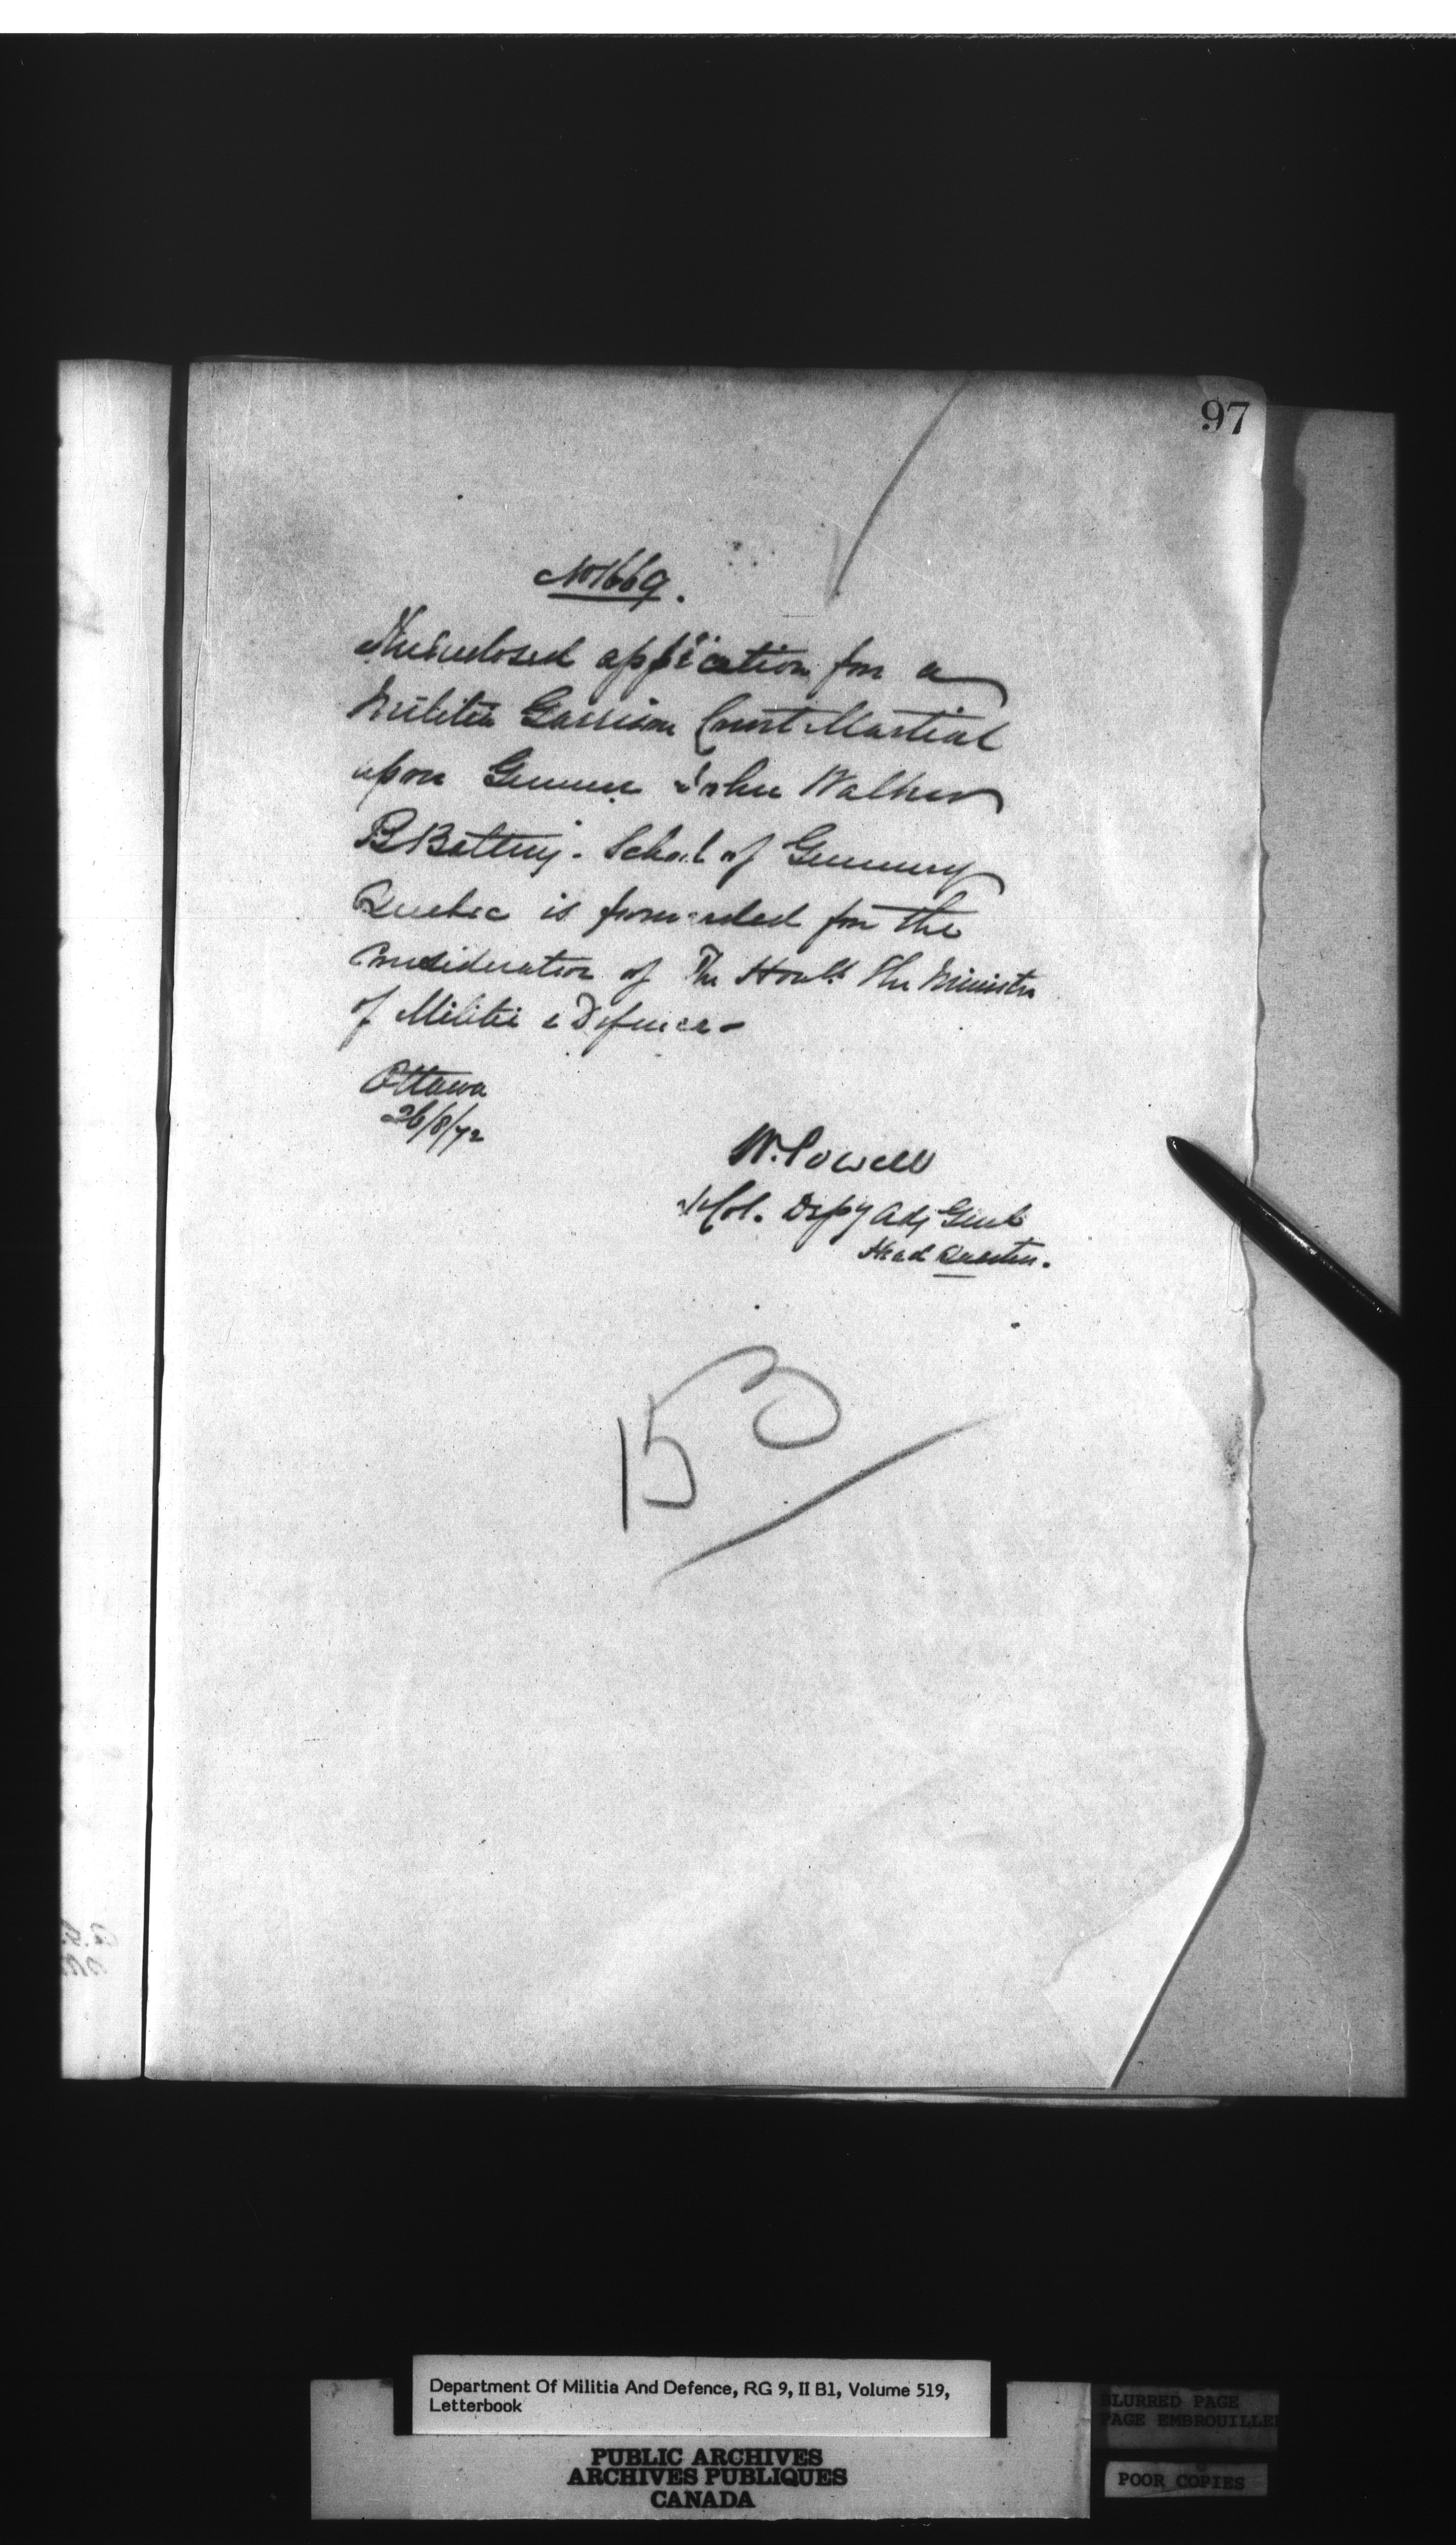 97
No 1669.
The enclosed application for a
Militia Garrison Court Martial
upon Gunner John Walker
B Battery. School of Gunnery
Quebec is forwarded for the
Consideration of The Honble The Minister
of Militia & Defence -
Ottawa
26/8/72
W. Powell
Lt Col. Depy Adj Genl
Head Quarters.
153
Department Of Militia And Defence, RG 9, II B1, Volume 519,
Letterbook
BLURRED PAGE
PAGE EMBROUILLE
PUBLIC ARCHIVES
ARCHIVES PUBLIQUES
CANADA
POOR COPIES